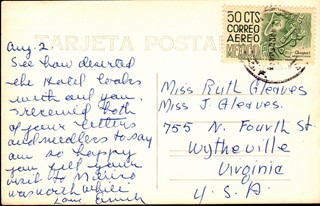 TARJETA POSTAL
50 CTS
CORREO
AEREO
MEXICO
Aug. 2.
See how deserted
the Hotel looks
with out you.
Received both
of your letters
and needless to say
am so happy
you felt your
visit to Mexico
was worth while
Love
Miss Ruth Gleaves
Miss J Gleaves.
755 N. Fourth St.
Wytheville
Virginia
U.S.A.